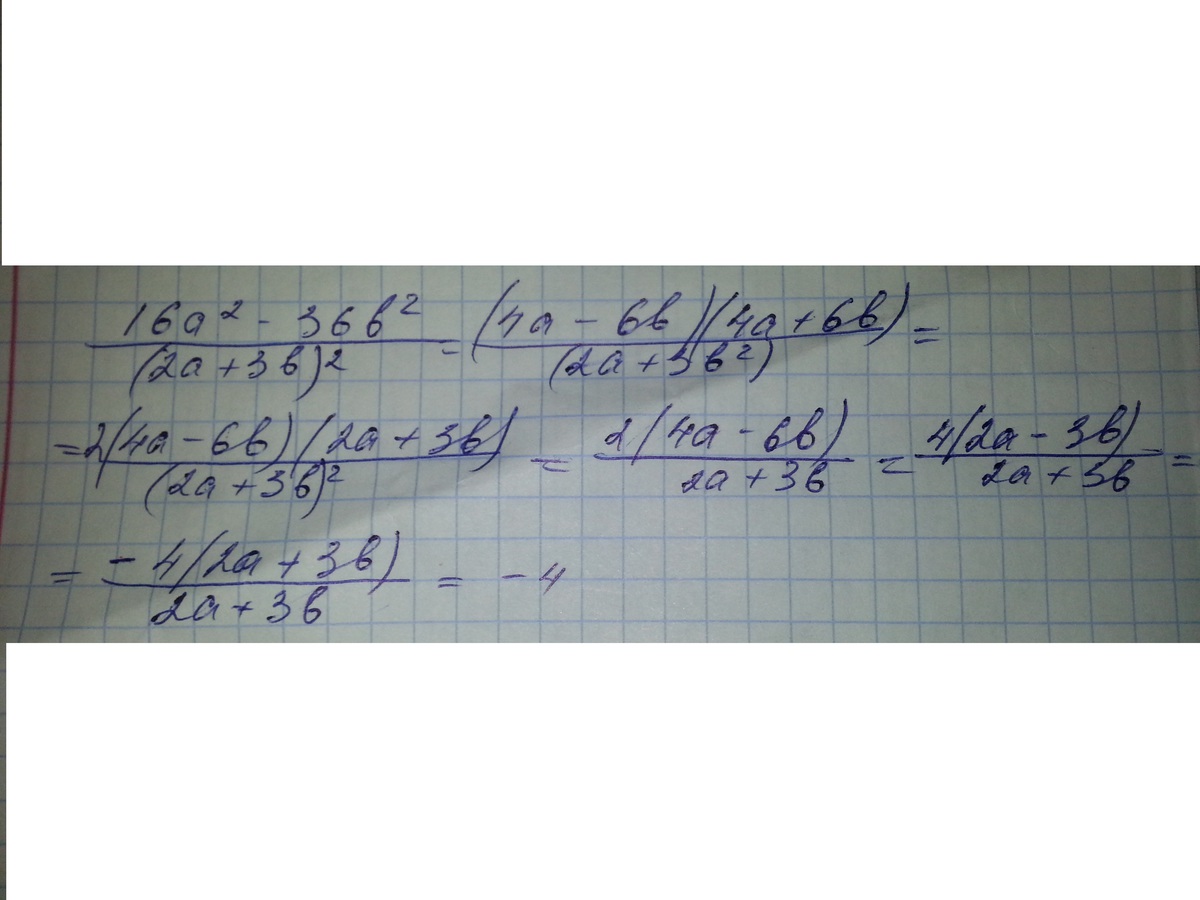 (16a² - 36в²)/(2a + 3в)² = ((4a - 6в)(4a + 6в))/(2a + 3в²) =
= (2(4a - 6в)(2a + 3в))/(2a + 3в)² = (2(4a - 6в))/(2a + 3в) = (4(2a - 3в))/(2a + 3в) =
= (-4(2a + 3в))/(2a + 3в) = -4